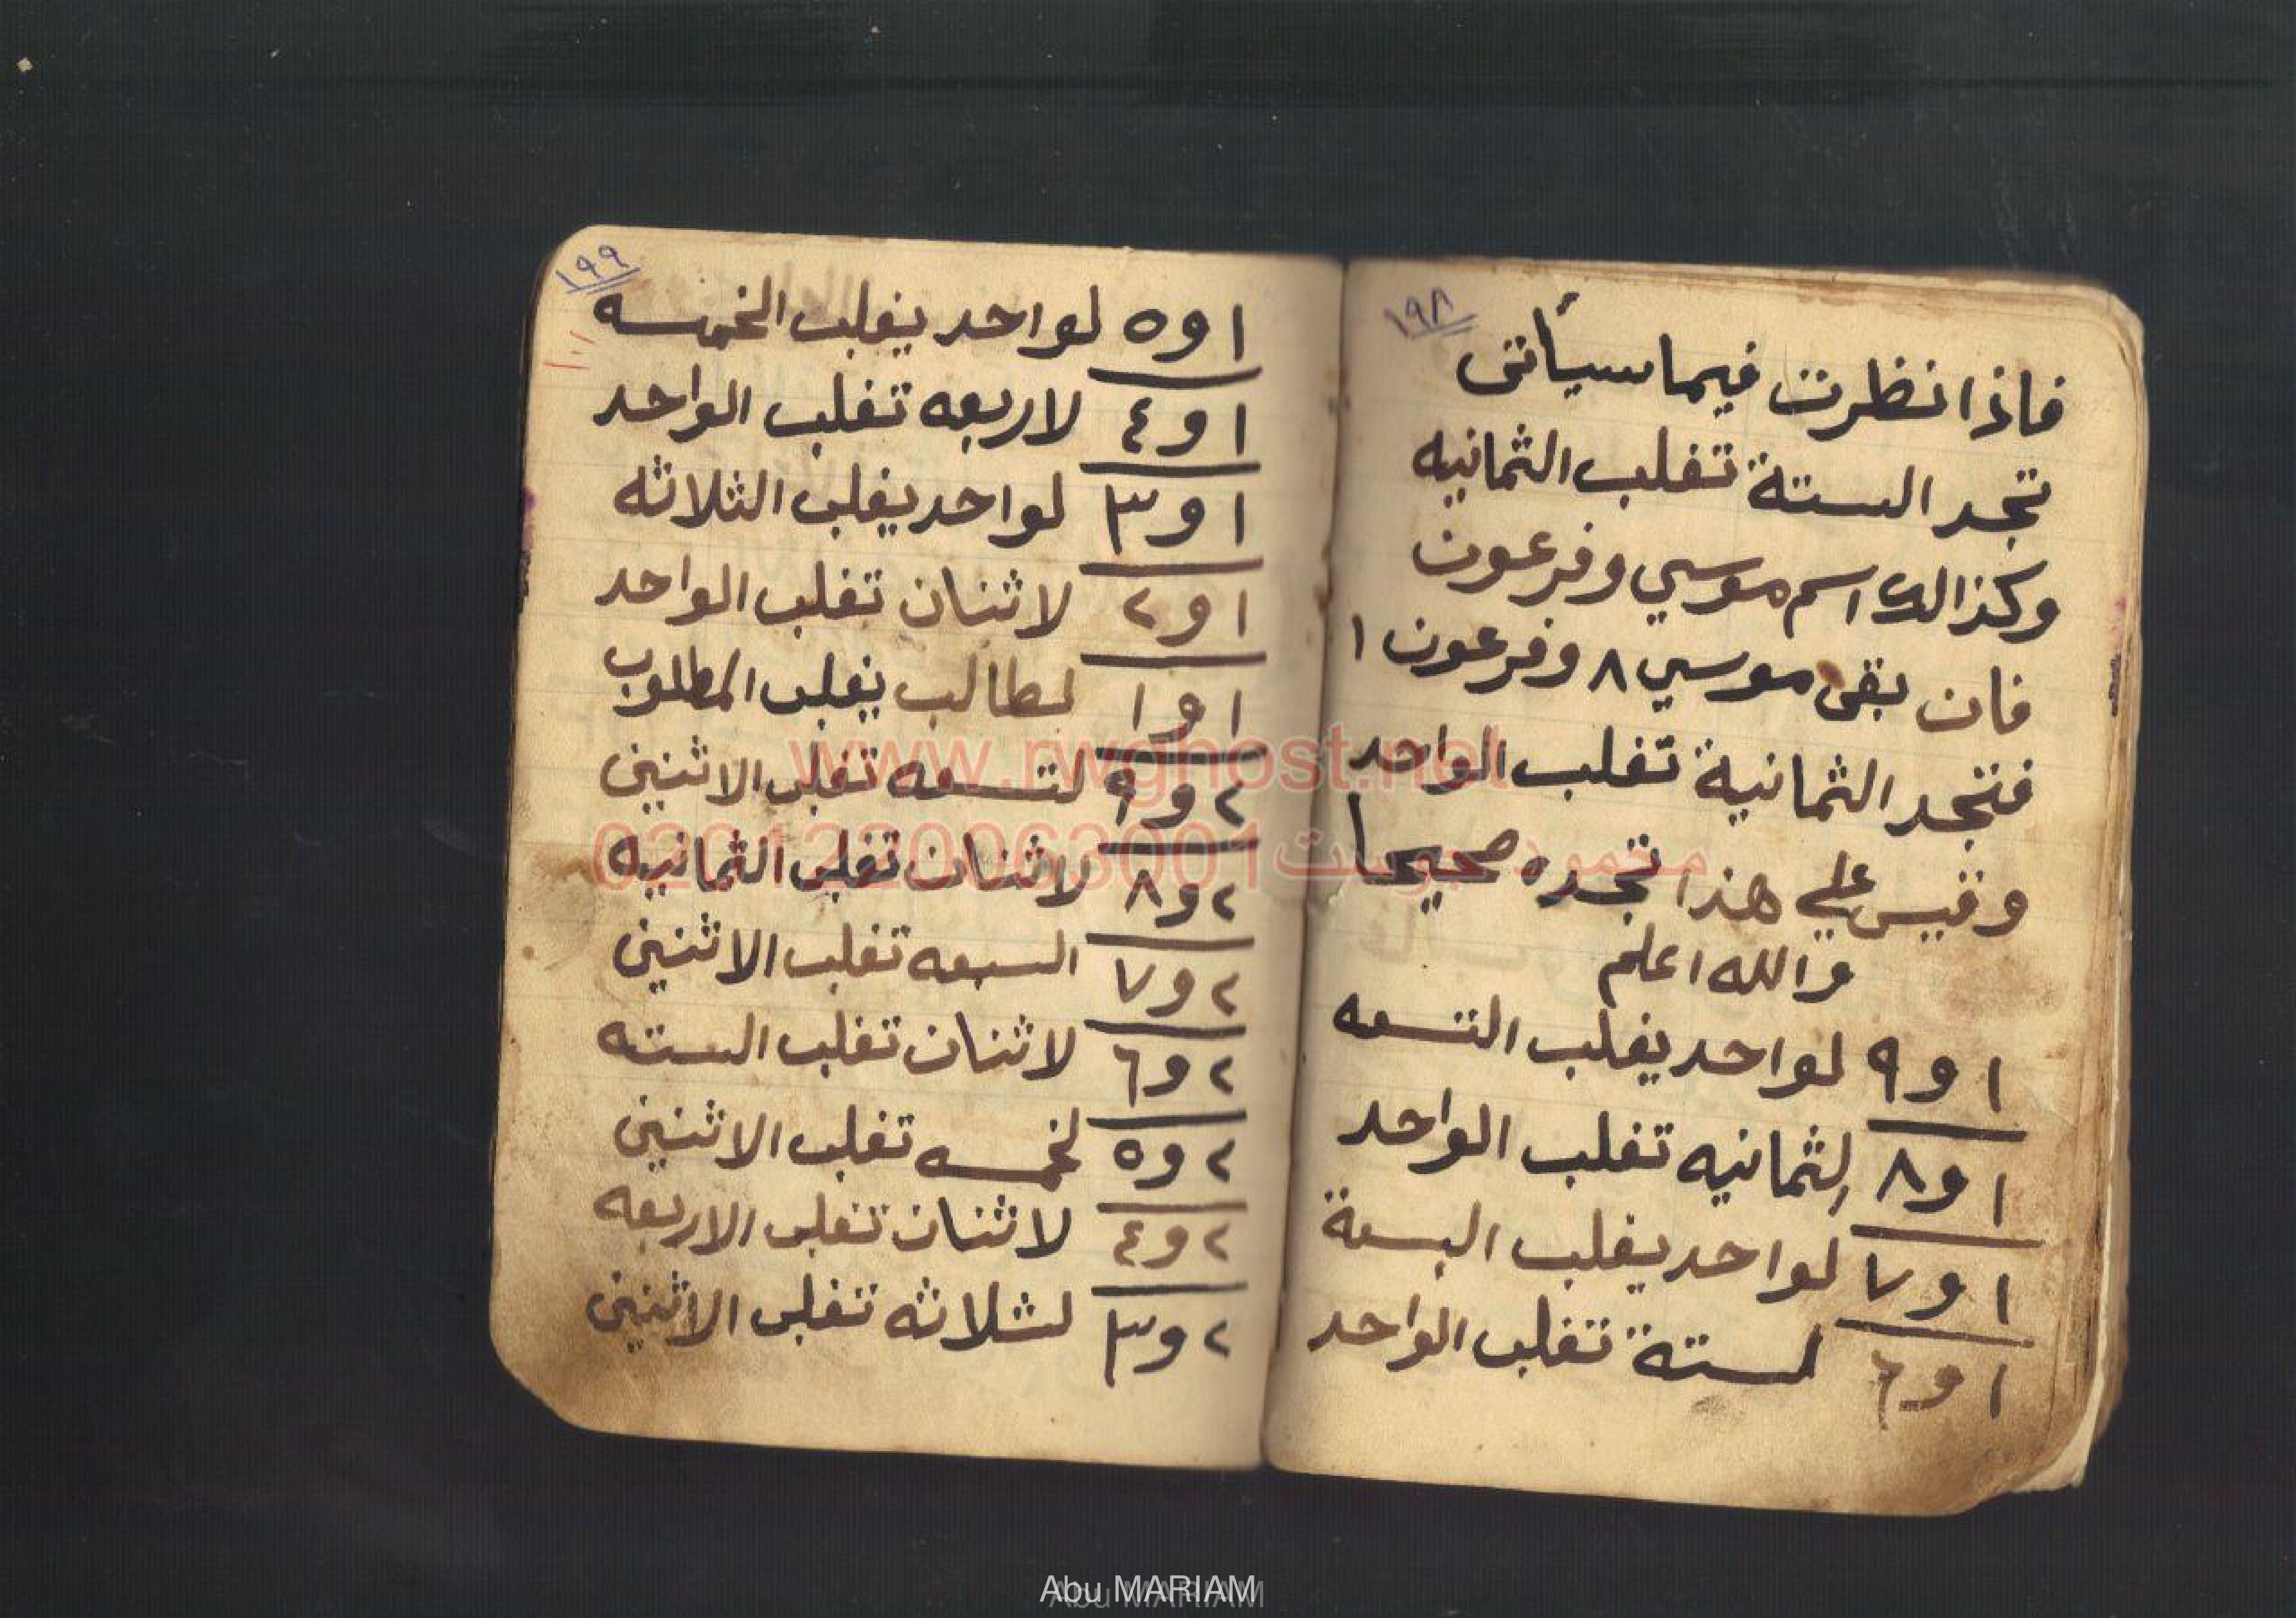 ١٩٨
فاذا نظرت فيما سيأتى
تجد الستة تغلب الثمانيه
وكذالك اسم موسي وفرعون
فان بقى موسي ٨ وفرعون ١
فتجد الثمانية تغلب الواحد
وقيس علي هذا تجده صحيحا
والله اعلم
١ و ٩ لواحد يغلب التسعه
١ و ٨ لثمانيه تغلب الواحد
١ و ٧ لواحد يغلب السبعة
١ و ٦ لستة تغلب الواحد
١٩٩
١٠١
١ و ٥ لواحد يغلب الخمسه
١ و ٤ لاربعه تغلب الواحد
١ و ٣ لواحد يغلب الثلاثه
١ و ٢ لاثنان تغلب الواحد
١ و ١ لطالب يغلب المطلوب
٢ و ٩ لتسعه تغلب الاثنين
٢ و ٨ لاثنان تغلب الثمانيه
٢ و ٧ السبعه تغلب الاثنين
٢ و ٦ لاثنان تغلب السته
٢ و ٥ لخمسه تغلب الاثنين
٢ و ٤ لاثنان تغلب الاربعه
٢ و ٣ لثلاثه تغلب الاثنين
www.rwghost.net
محمود جوست 0201220063001
Abu MARIAM